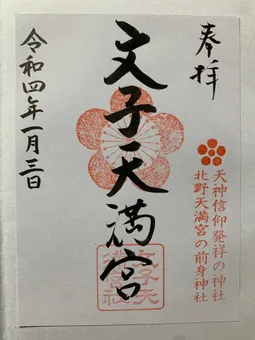 奉拝
天神信仰発祥の神社
北野天満宮の前身神社
文子天満宮
令和四年一月三日